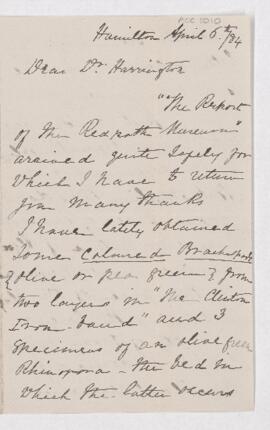 ACC 1010
Hamilton April 6th/84
Dear Dr. Harrington
"The Report
of the Redpath Museum"
arrived quite safely for
which I have to return
you many thanks
I have lately obtained
some Coloured Brachiopods
(olive or pea green) from
two layers in "the Clinton
Iron band" and 3
specimens of an olive green
Rhinopora - the bed in
which the latter occurs